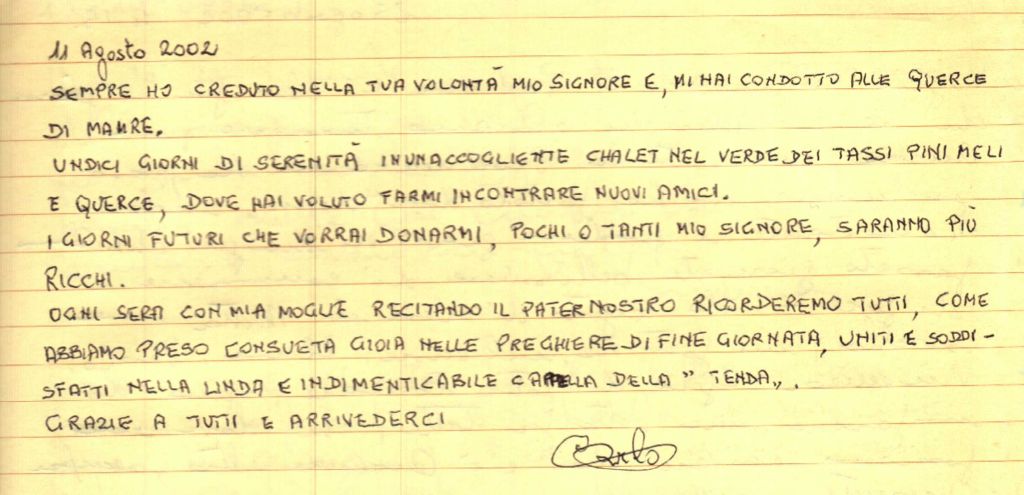 11 Agosto 2002
SEMPRE HO CREDUTO NELLA TUA VOLONTÀ MIO SIGNORE E, MI HAI CONDOTTO ALLE QUERCE
DI MAMRE.
UNDICI GIORNI DI SERENITÀ IN UN ACCOGLIENTE CHALET NEL VERDE DEI TASSI PINI MELI
E QUERCE, DOVE HAI VOLUTO FARMI INCONTRARE NUOVI AMICI.
I GIORNI FUTURI CHE VORRAI DONARMI, POCHI O TANTI MIO SIGNORE, SARANNO PIÙ
RICCHI.
OGNI SERA CON MIA MOGLIE RECITANDO IL PATERNOSTRO RICORDEREMO TUTTI, COME
ABBIAMO PRESO CONSUETA GIOIA NELLE PREGHIERE DI FINE GIORNATA, UNITI E SODDI-
SFATTI NELLA LINDA E INDIMENTICABILE CAPPELLA DELLA " TENDA ".
GRAZIE A TUTTI E ARRIVEDERCI
Carlo